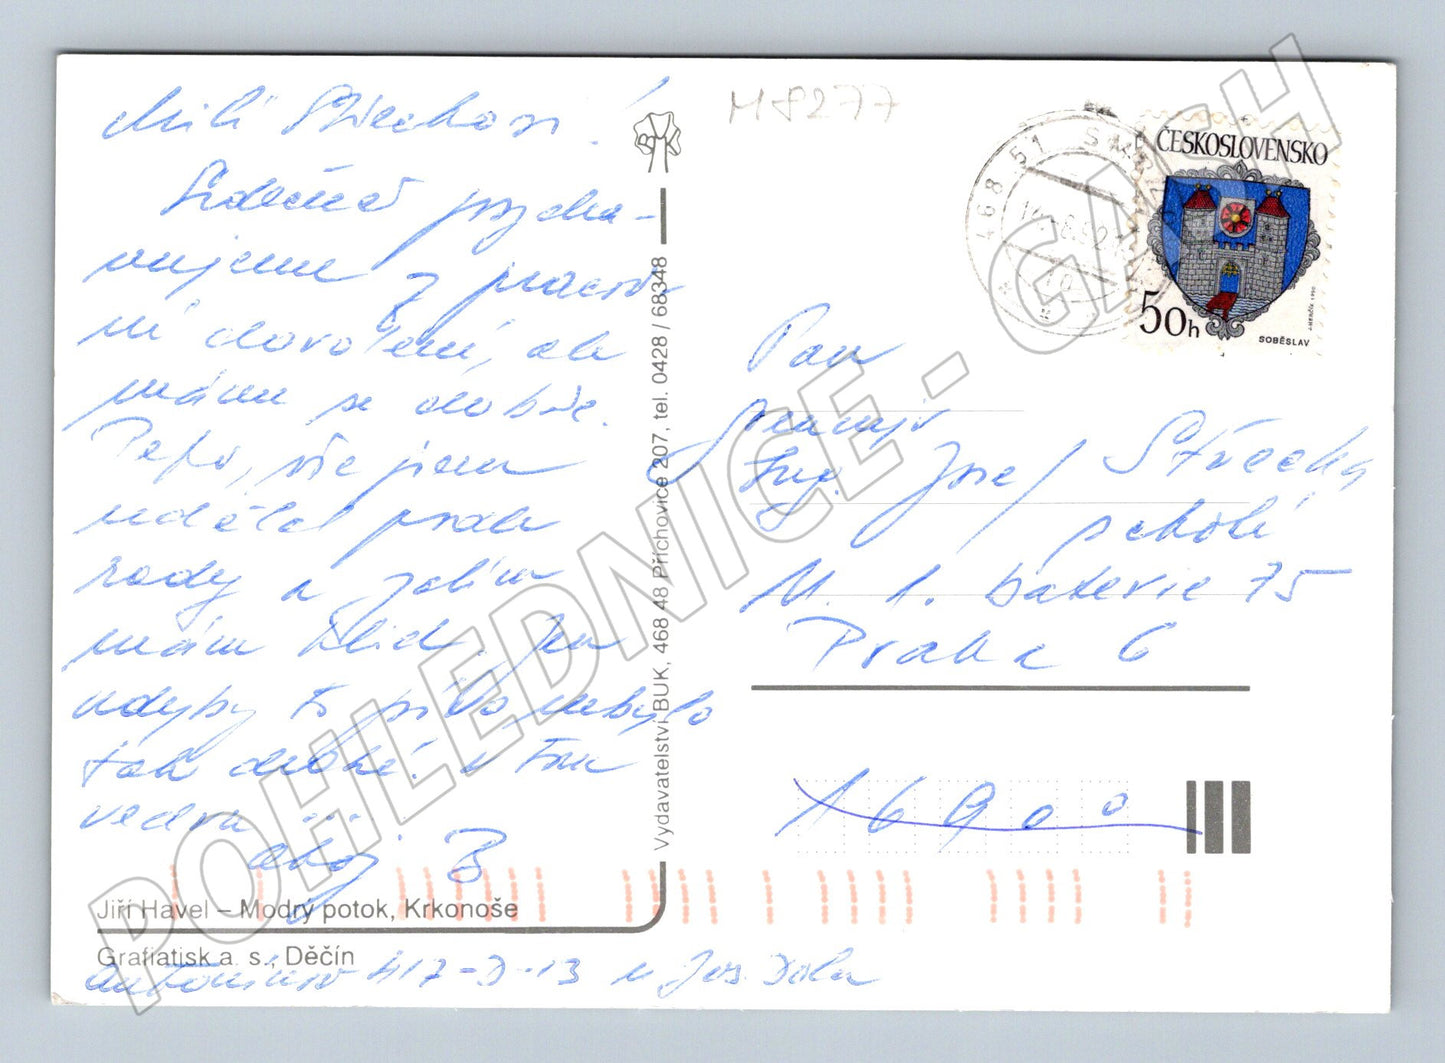 Milí Střechovi!
Srdečně pozdra-
vujeme z pracov
ní dovolené, ale
máme se dobře.
Pepo, vše jsem
udělal podle
rady a zatím
mám klid. Jen
kdyby to pivo nebylo
tak drahé. V tom
vedru ...
ahoj B
Jiří Havel – Modrý potok, Krkonoše
Grafiatisk a. s., Děčín
417-D-13 u Jos.
Vydavatelství BUK, 468 48 Příchovice 207, tel. 0428 / 68348
M8277
468 51 SM
14.-8.92
ČESKOSLOVENSKO
50h
SOBĚSLAV
J. HERČÍK 1990
Pan
Ing. Josef Střecha
M. 1. baterie 75
Praha 6
16900
POHLEDNICE - GASH